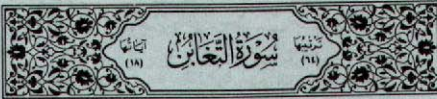 ترتيبها (٦٤) سُورَةُ التَّغَابُنِ آياتها (١٨)